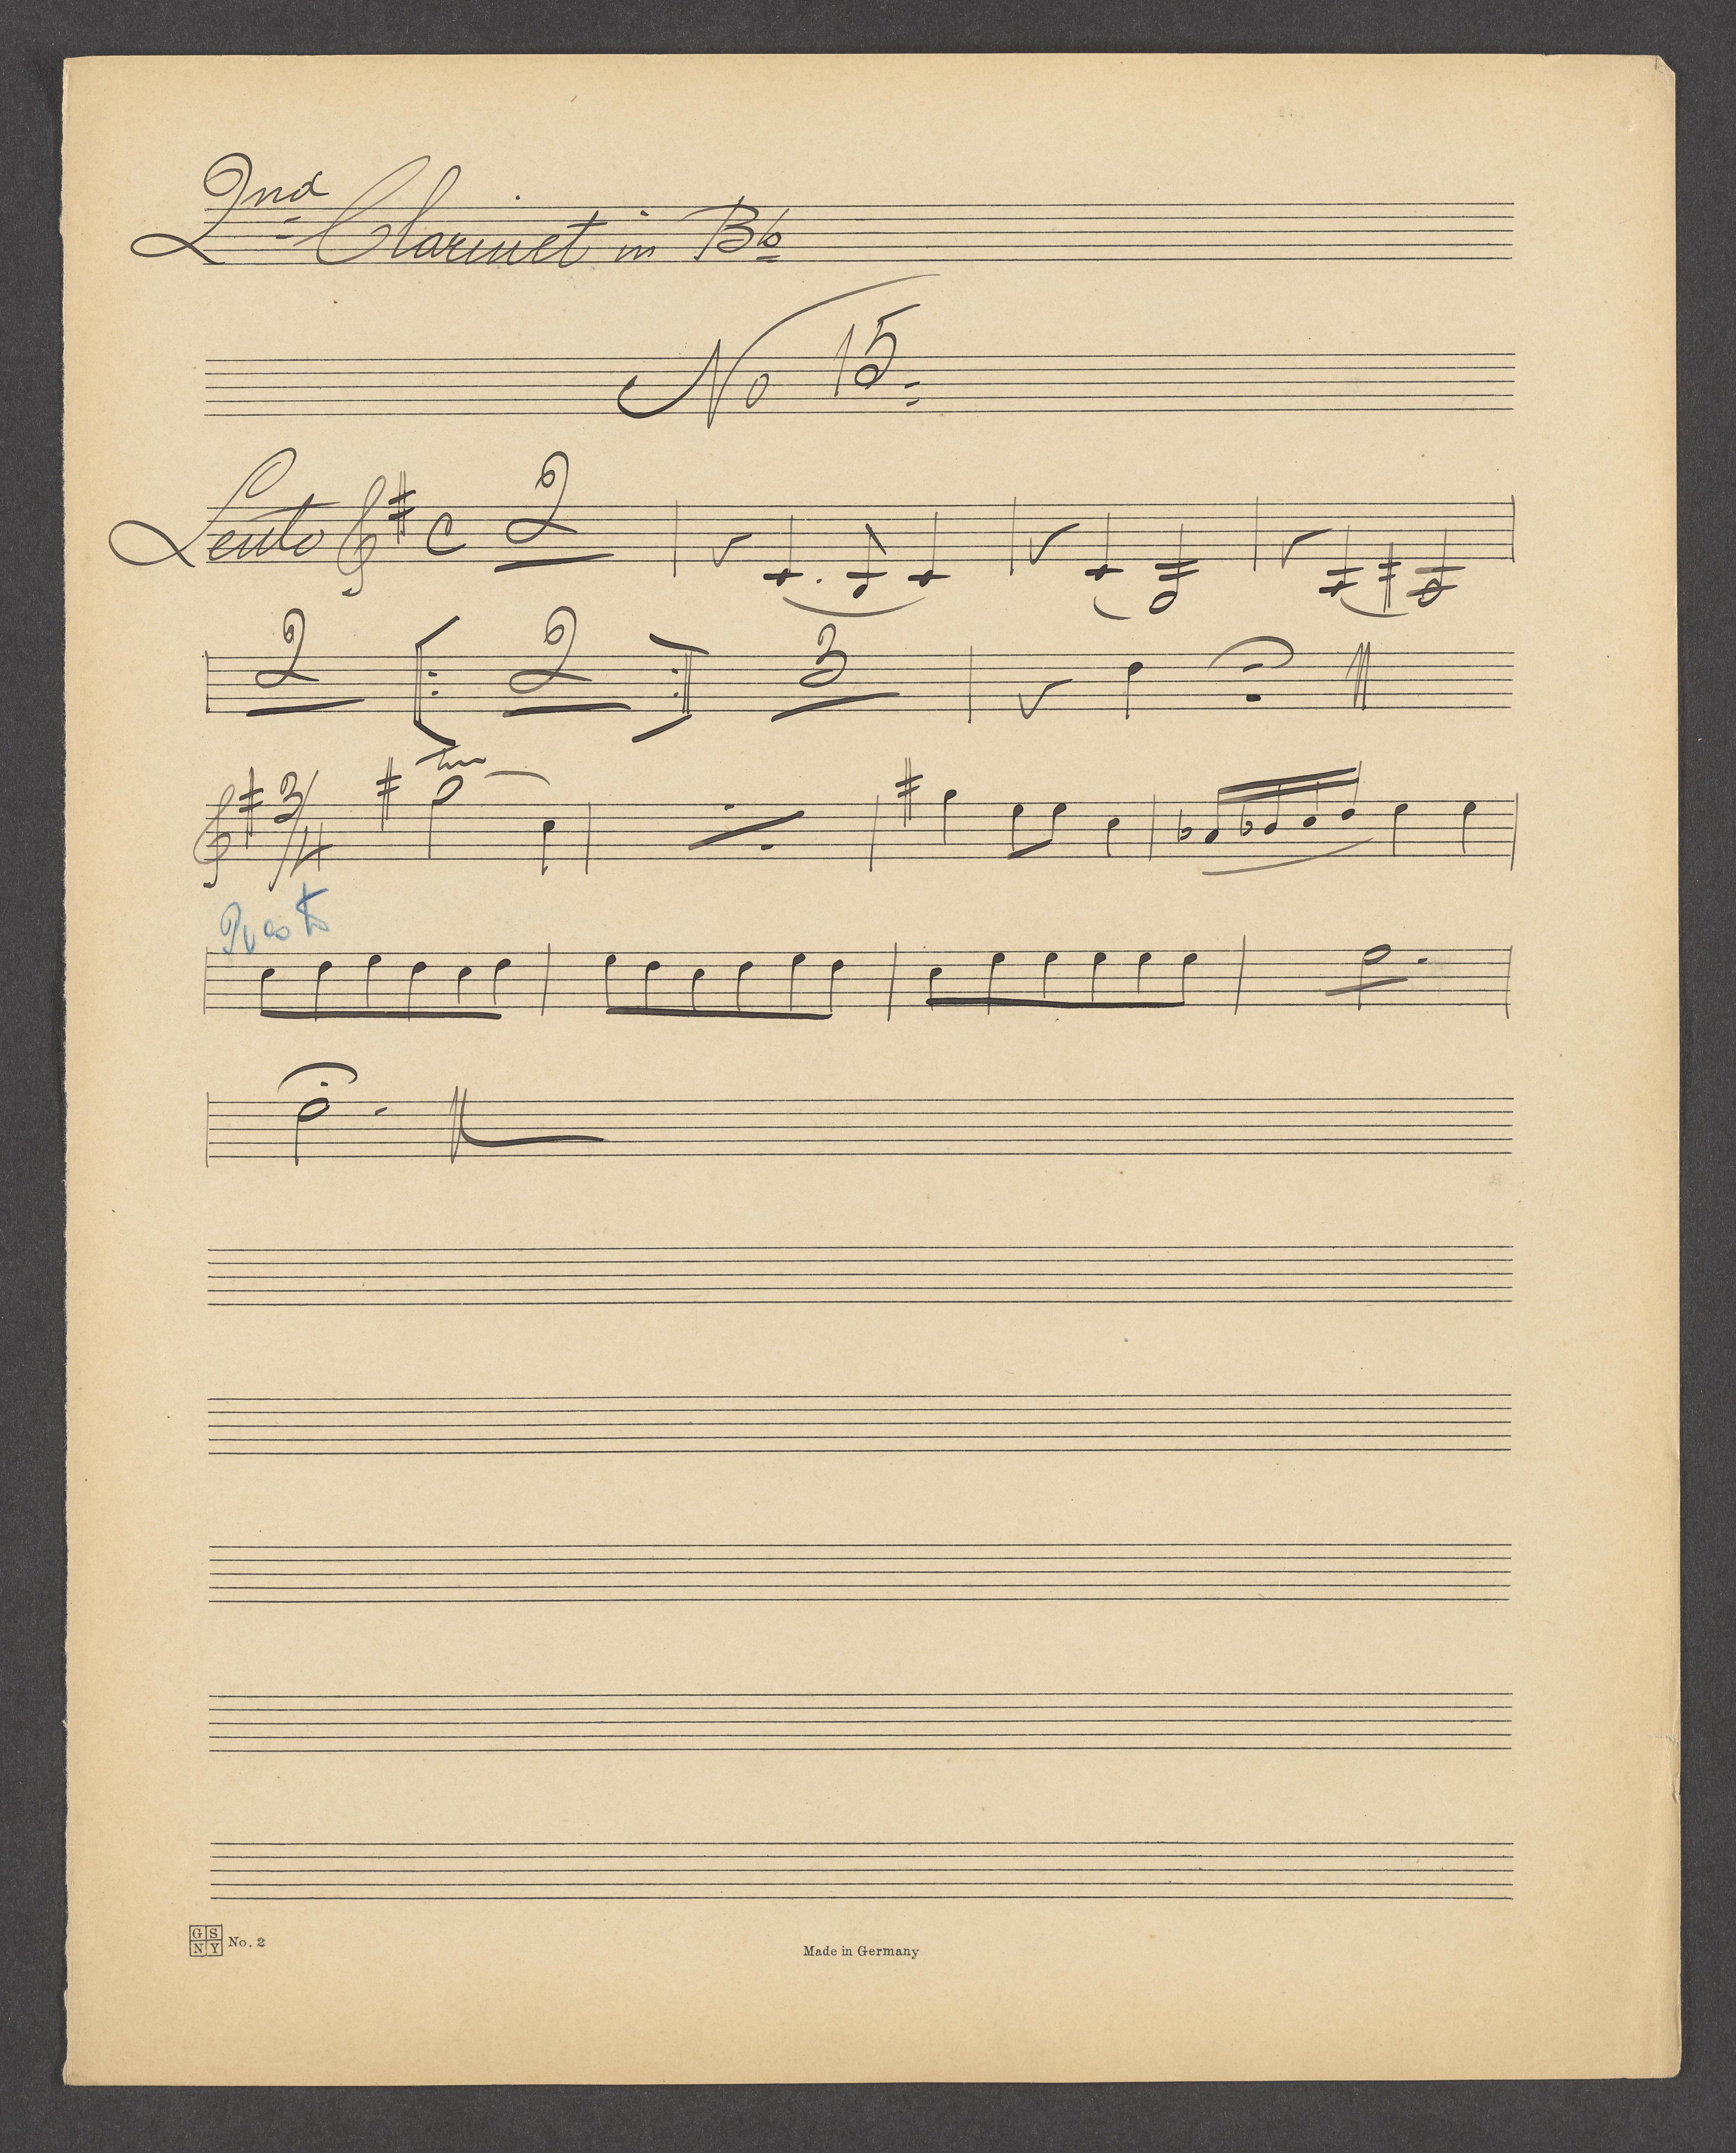 2nd Clarinet in Bb
No 15.
Lento C 2
2 2 3
tr
3/4
Presto
GS
NY No. 2
Made in Germany